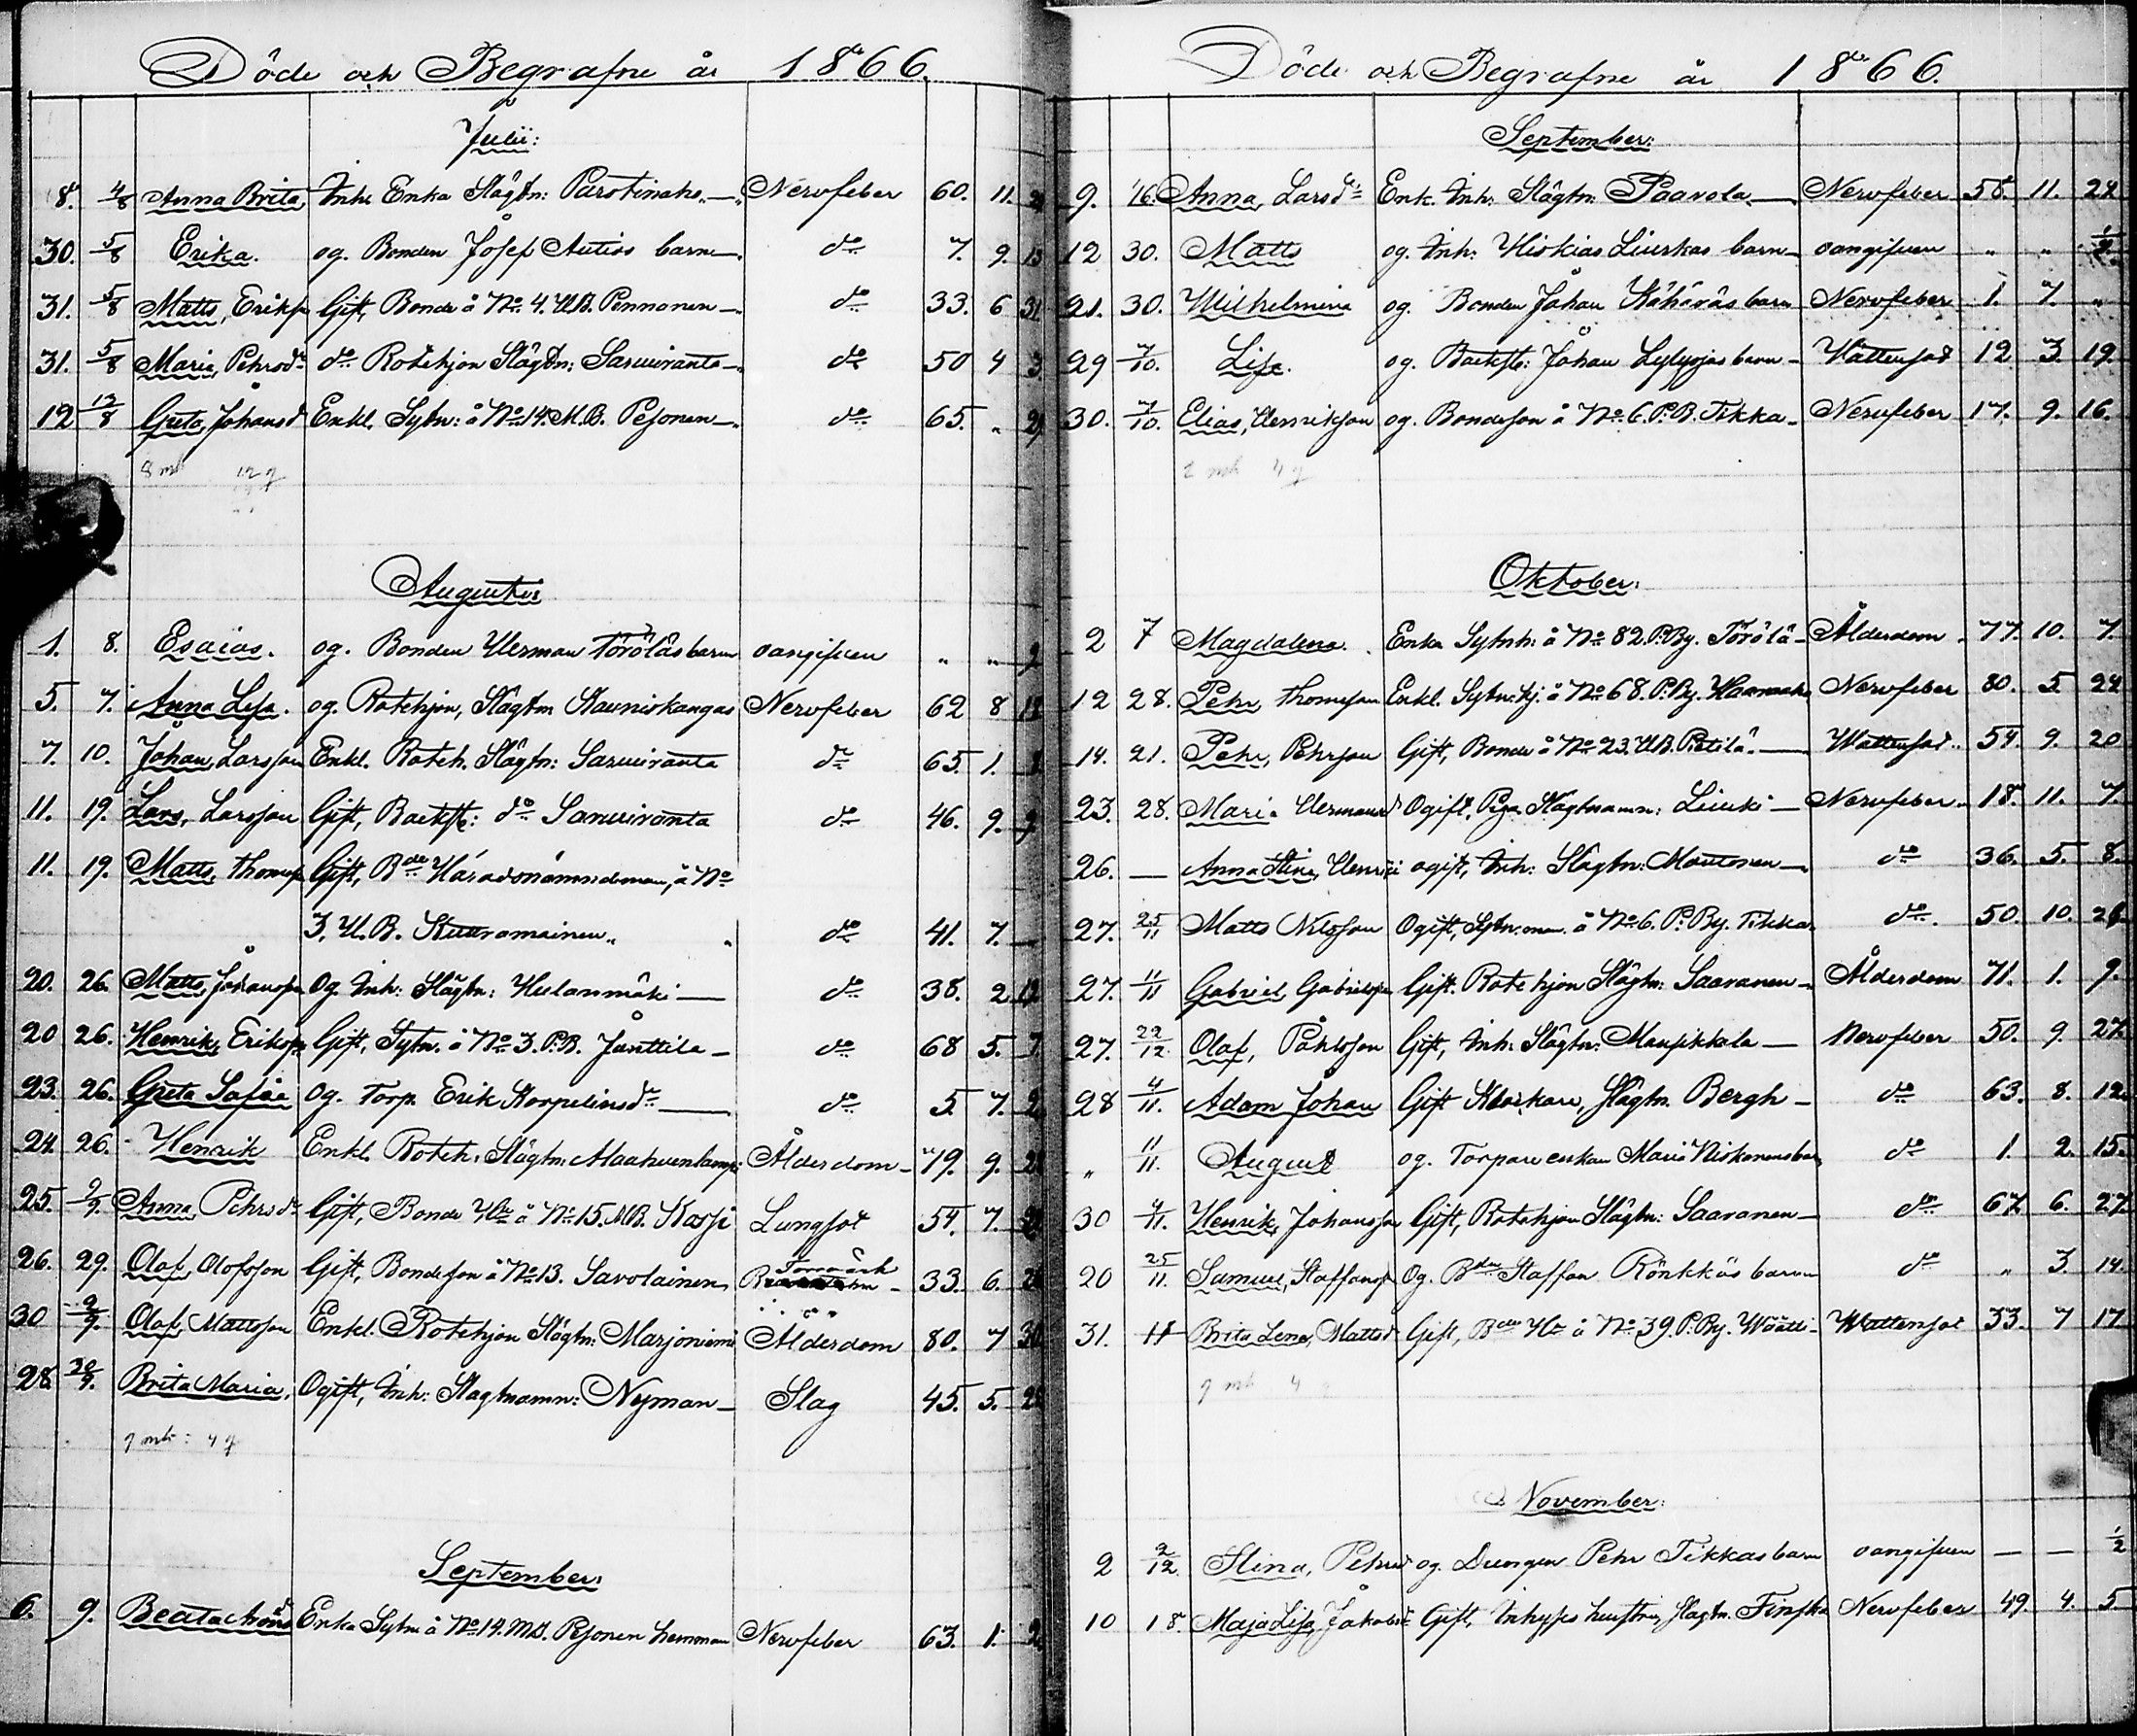 Döde och Begrafne år 1866.
Julii:
8. 4/8 Anna Brita, Inh. Enka Slägtn: Parotinaho Nervfeber 60. 11.
30. 5/8 Erika. og. Bonden Josef Autios barn d:o 7. 9. 13
31. 5/8 Matts, Eriks Gift, Bonde å No 4. U.B. Pennanen d:o 33. 6 31.
31. 5/8 Maria, Pehrsd:r d:o Rotehjon Slägtn: Sarwiranta d:o 50 4 3.
12 12/8 Greta, Johansd Enkl. Sytn: å No 14. M.B. Pesonen d:o 65. „
8 mk 12 q
Augusti:
1. 8. Esaias. og. Bonden Herman Törölås barn oangifven „ „
5. 7. Anna Lisa. og. Rotehjon, Slägtn Kauniskangas Nervfeber 62 8
7. 10. Johan, Larsson Enkl. Roteh. Slägtn: Sarwiranta d:o 65. 1.
11. 19. Lars, Larsson Gift, Backst: d:o Sarwiranta d:o 46. 9. 9
11. 19. Matts, Thomass Gift, Bde Häradsnämndeman, å No
3. U.B. Kuuramainen „ d:o 41. 7.
20. 26. Matts, Johansson Og. Inh: Slägtn: Hulanmäki d:o 38. 2
20 26. Henrik, Eriksson Gift, Sytn. å No 3. P.B. Jänttilä d:o 68 5. 7.
23. 26. Greta Sofia Og. Torp. Erik Korpelins d:r d:o 5. 7. 2
24. 26. Henrik Enkl. Roteh. Slägtn: Maahuenlampi Ålderdom 79. 9.
25. 2/9 Anna Pehrsdr Gift, Bonde Hu å No 15. M.B. Kasji Lungsot 54. 7.
26. 29. Olof, Olofsson Gift, Bondeson å No 13. Savolainen Torrvärk 33. 6.
30 2/9. Olof, Mattsson Enkl. Rotehjon Slägtn: Marjoniemi Ålderdom 80. 7 30
28. 30/9. Brita Maria, Ogift, Inh: Slagtnamn: Nyman Slag 45. 5.
9 mk: 4 q
September:
6. 9. Beata Enka Sytn å No 14. M.B. Pesonen hemman Nervfeber 63. 1.
Döde och Begrafne år 1866.
September:
9. 16. Anna, Larsd:r Enk. Inh: Slägtn: Paavola Nervfeber 58. 11. 22
12 30. Matts og. Inh: Hiskias Liuskas barn oangifven „ „ 1/2
21. 30. Wilhelmina og. Bonden Johan Kähäräs barn Nervfeber 1. 7. „
29 7/10. Lisa. og. Backst: Johan Lylyojas barn Wattensot 12 3. 19.
30. 7/10. Elias, Henriksson og. Bondeson å No 6. P.B. Tikka Nervfeber 17. 9. 16.
2 mk 4 q
Oktober:
2 7 Magdalena. Enka Sytnh: å No 82. P.By. Törölä Ålderdom 77. 10. 7.
12 28. Pehr Thomasson Enkl. Sytn.hj: å No 68. P.By. Nervfeber 80. 5. 24
14. 21. Pehr, Pehrson Gift, Bonde å No 23. U.B. Pietilä Wattensot 54. 9. 20
23. 28. Maria Hermansd Ogift, Piga Slägtnamn: Liuski Nervfeber 18. 11. 7.
26. — Anna Stina, Henrici ogift, Inh: Slägtn: Moutonen d:o 36. 5. 8.
27. 25/11 Matts Nilsson Ogift, Sytn.man å No 6. P.By. Tikka d:o 50. 10. 26
27. 11/11 Gabriel Gabrielsson Gift. Rotehjon Slägtn: Saaranen Ålderdom 71. 1. 9.
27. 22/12 Olof, Påhlsson Gift, Inh. Slägtn: Maupikkala Nervfeber 50. 9. 27.
28 4/11. Adam Johan Gift Klockare, Slägtn. Bergh d:o 63. 8. 12.
„ 11/11. August og. Torpare enkan Maria Niskanens barn d:o 1. 2. 15.
30 4/11. Henrik, Johansson Gift, Rotehjon Slägtn: Saaranen d:o 67 6. 27
20 25/11. Samuel, Staffanss Og. Bden Staffan Rönkkös barn d:o „ 3. 14.
31. 11 Brita Lena, Mattsd Gift, Bde Hu å No 39. P.By. Wäätti Wattensot 33. 7 17
9 mk 4
November:
2 2/12. Stina, Pehrsd og. Drengen Pehr Tikkas barn oangifven — — 1/2
10 18. Maja Lisa, Jakobsd Gift, Inhyses hustru, Slagtn. Finska Nervfeber 49 4. 5.